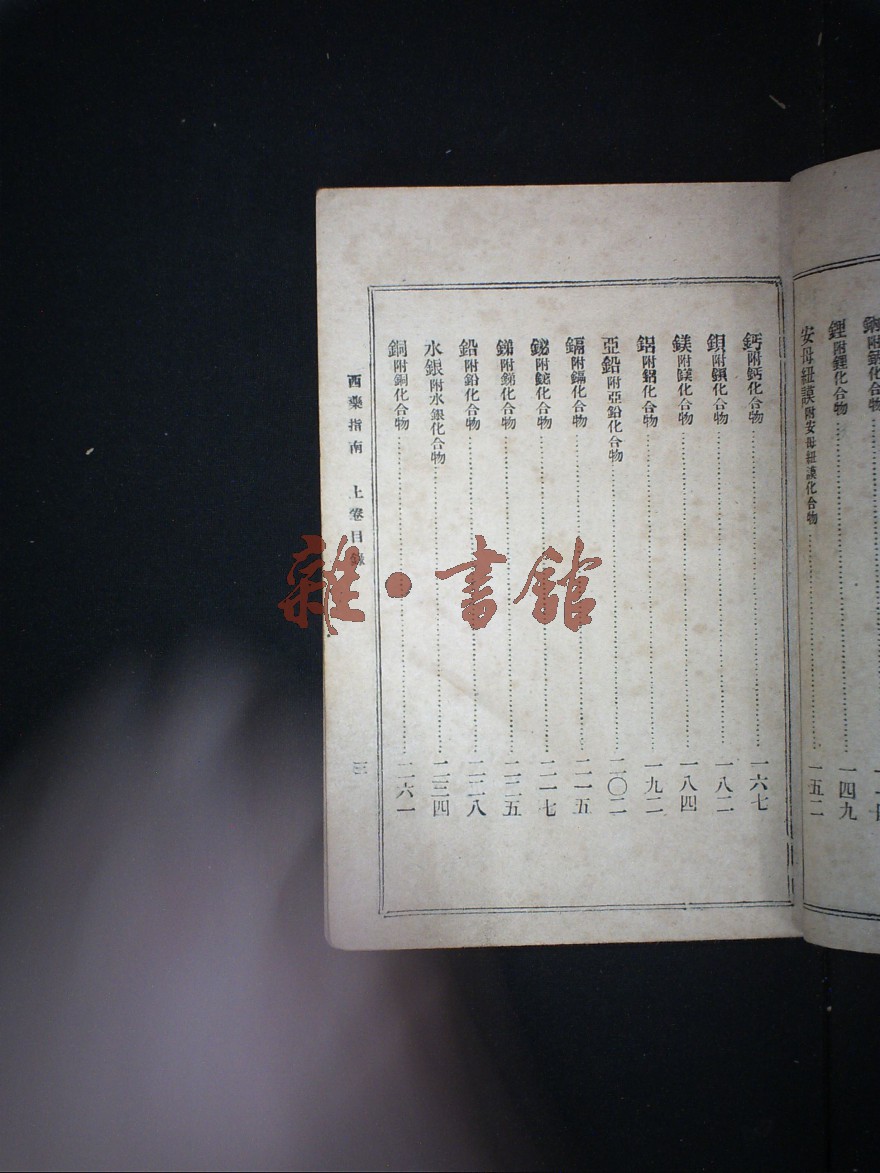 鋰附鋰化合物……一四九
安母紐謨附安母紐謨化合物……一五二
鈣附鈣化合物……一六七
鋇附鋇化合物……一八二
鎂附鎂化合物……一八四
鋁附鋁化合物……一九二
亞鉛附亞鉛化合物……二〇二
鎘附鎘化合物……二一五
鉍附鉍化合物……二一七
銻附銻化合物……二二五
鉛附鉛化合物……二二八
水銀附水銀化合物……二三四
銅附銅化合物……二六一
西藥指南 上卷目錄 三
雜·書館